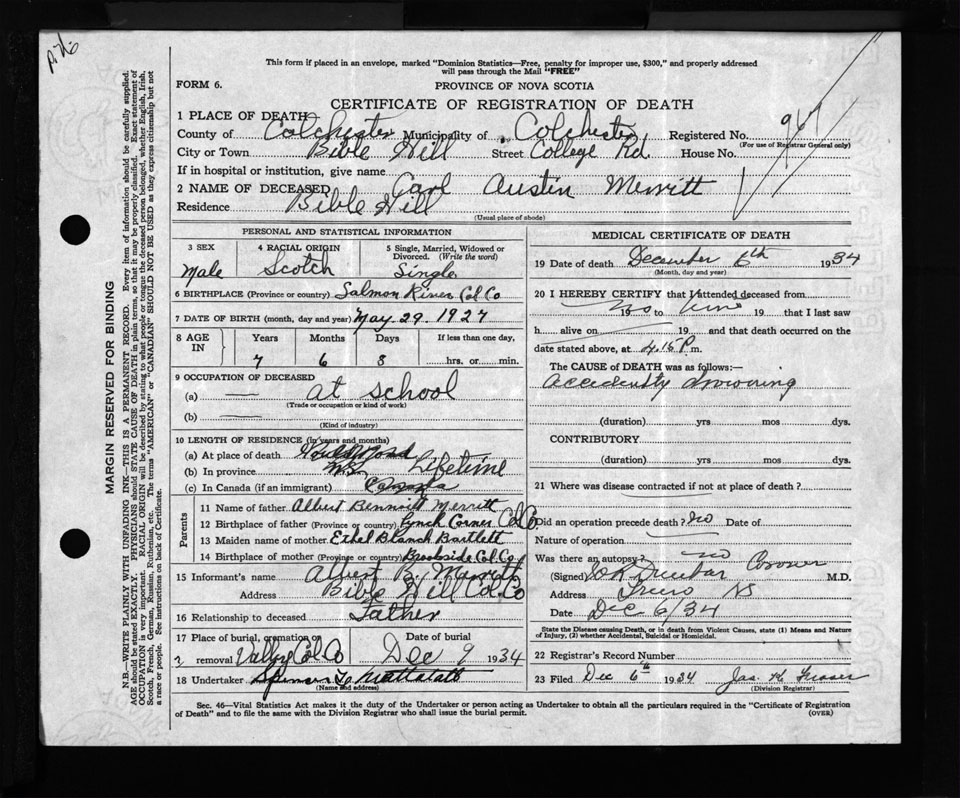 This form if placed in an envelope, marked "Dominion Statistics—Free, penalty for improper use, $300," and properly addressed
will pass through the Mail "FREE"
FORM 6.
PROVINCE OF NOVA SCOTIA
CERTIFICATE OF REGISTRATION OF DEATH
1 PLACE OF DEATH
County of Colchester Municipality of Colchester Registered No.
(For use of Registrar General only)
City or Town Bible Hill Street College Rd. House No.
If in hospital or institution, give name
2 NAME OF DECEASED Carl Austin Merritt
Residence Bible Hill
(Usual place of abode)
PERSONAL AND STATISTICAL INFORMATION
3 SEX 4 RACIAL ORIGIN 5 Single, Married, Widowed or
Divorced. (Write the word)
Male Scotch Single
6 BIRTHPLACE (Province or country) Salmon River Col Co
7 DATE OF BIRTH (month, day and year) May 29. 1927
8 AGE IN Years Months Days If less than one day,
7 6 8 hrs. or min.
9 OCCUPATION OF DECEASED
(a) — at school
(Trade or occupation or kind of work)
(b) —
(Kind of industry)
10 LENGTH OF RESIDENCE (in years and months)
(a) At place of death
(b) In province Lifetime
(c) In Canada (if an immigrant) Canada
Parents
11 Name of father Albert Merritt
12 Birthplace of father (Province or country) Lynch Corner Col Co
13 Maiden name of mother Ethel Blanch Bartlett
14 Birthplace of mother (Province or country) Brookside Col. Co.
15 Informant's name Albert B. Merritt
Address Bible Hill Col. Co
16 Relationship to deceased Father
17 Place of burial, cremation or Date of burial
removal Valley Col Co Dec 9 1934
18 Undertaker
(Name and address)
MEDICAL CERTIFICATE OF DEATH
19 Date of death December 6th 1934
(Month, day and year)
20 I HEREBY CERTIFY that I attended deceased from
19 to 19 that I last saw
h alive on 19 and that death occurred on
date stated above, at 4.15 P m.
The CAUSE OF DEATH was as follows:—
Accidently drowning
(duration) yrs mos dys.
CONTRIBUTORY
(duration) yrs mos dys.
21 Where was disease contracted if not at place of death?
Did an operation precede death? No Date of
Nature of operation
Was there an autopsy? no
(Signed) Dunbar Coroner M.D.
Address Truro NS
Date Dec 6/34
State the Disease causing Death, or in death from Violent Causes, state (1) Means and Nature
of Injury, (2) whether Accidental, Suicidal or Homicidal.
22 Registrar's Record Number
23 Filed Dec 6th 1934 Jas. K. Fraser
(Division Registrar)
Sec. 46—Vital Statistics Act makes it the duty of the Undertaker or person acting as Undertaker to obtain all the particulars required in the "Certificate of Registration
of Death" and to file the same with the Division Registrar who shall issue the burial permit.
(OVER)
MARGIN RESERVED FOR BINDING
N.B.—WRITE PLAINLY WITH UNFADING INK—THIS IS A PERMANENT RECORD. Every item of information should be carefully supplied.
AGE should be stated EXACTLY. PHYSICIANS should STATE CAUSE OF DEATH in plain terms, so that it may be properly classified. Exact statement of
OCCUPATION is very important. RACIAL ORIGIN will be described by stating to what people or tongue the deceased person belonged, whether English, Irish,
Scotch, French, German, Russian, Ruthenian, etc. The terms "AMERICAN" or "CANADIAN" SHOULD NOT BE USED as they express citizenship but not
a race or people. See instructions on back of Certificate.